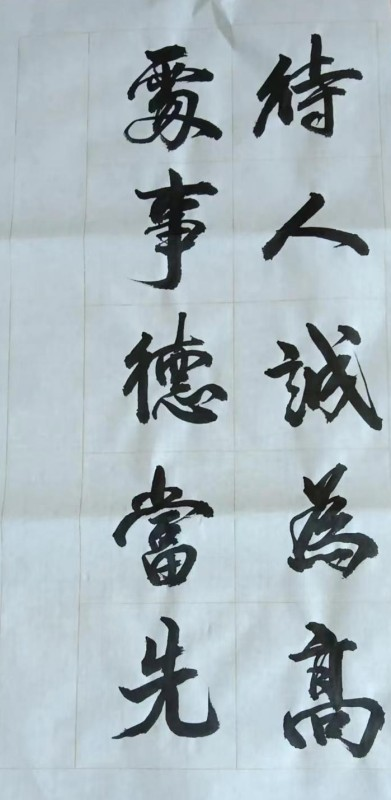 待人誠為高
處事德當先